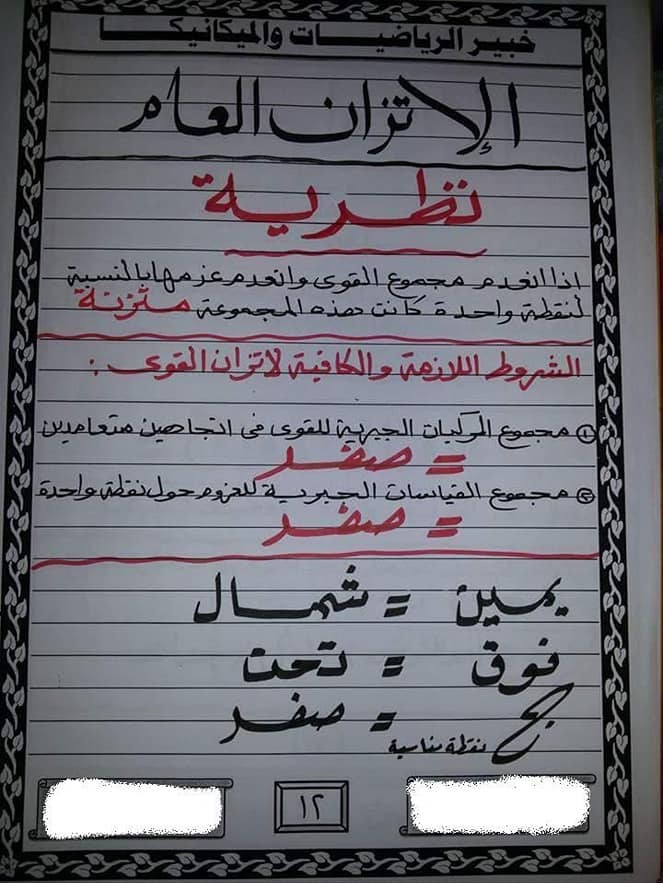 خبير الرياضيات والميكانيكا
الإتزان العام
نظرية
اذا انعدم مجموع القوى وانعدم عزمها بالنسبة
لنقطة واحدة كانت هذه المجموعة متزنة
الشروط اللازمة والكافية لاتزان القوى :
① مجموع المركبات الجبرية للقوى فى اتجاهين متعامدين
= صفر
② مجموع القياسات الجبرية للعزوم حول نقطة واحدة
= صفر
يمين = شمال
فوق = تحت
ج نقطة مناسبة = صفر
١٢